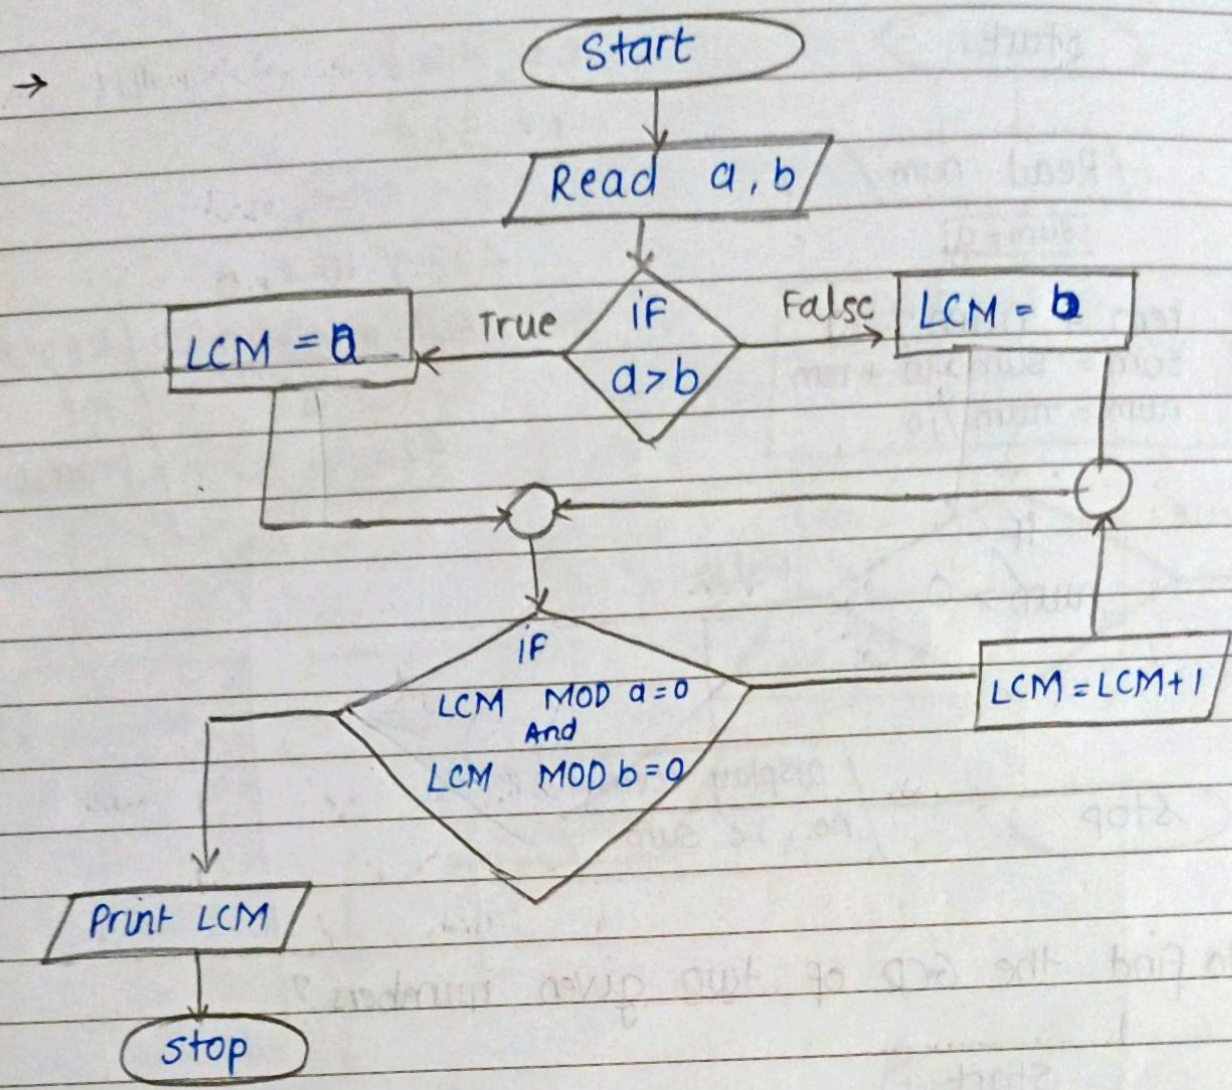 →
Start
Read a, b
if
a>b
True
False
LCM = a
LCM = b
if
LCM MOD a=0
And
LCM MOD b=0
LCM = LCM+1
Print LCM
stop